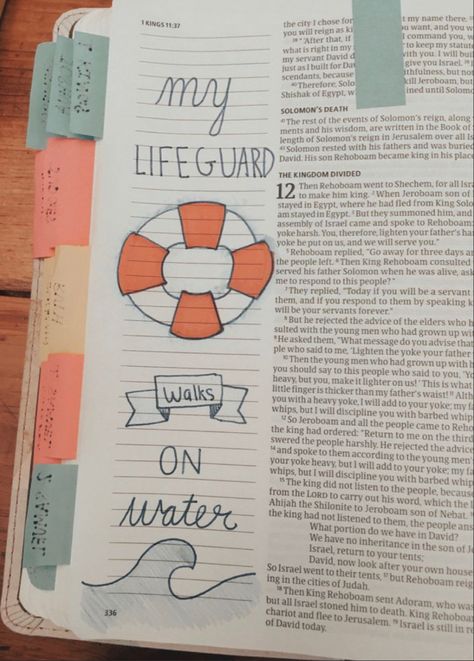 1 KINGS 11:37
my
LIFEGUARD
Walks
ON
water
336
the city I chose for
t my name there.
you will reign as ki
u want, and you w
38 "After that, if
I command you, w
what is right in my
to keep my statute
my servant David d
with you. I will buil
just as I built for Dav
give you Israel. 39 I
scendants, because
aithfulness, but no
40 Therefore, S
kill Jeroboam, but
Shishak of Egypt, w
ined until Solomo
SOLOMON'S DEATH
41 The rest of the events of Solomon's reign, along
ments and his wisdom, are written in the Book of
length of Solomon's reign in Jerusalem over all Is
43 Solomon rested with his fathers and was buried
David. His son Rehoboam became king in his place
THE KINGDOM DIVIDED
12 Then Rehoboam went to Shechem, for all Isr
to make him king. 2 When Jeroboam son of
stayed in Egypt, where he had fled from King Solo
am stayed in Egypt. 3 But they summoned him, and
assembly of Israel came and spoke to Rehoboam
yoke harsh. You, therefore, lighten your father's har
yoke he put on us, and we will serve you."
5 Rehoboam replied, "Go away for three days an
the people left. 6 Then King Rehoboam consulted
served his father Solomon when he was alive, as
me to respond to this people?"
7 They replied, "Today if you will be a servant
them, and if you respond to them by speaking k
will be your servants forever."
8 But he rejected the advice of the elders who
sulted with the young men who had grown up wit
9 He asked them, "What message do you advise that
ple who said to me, 'Lighten the yoke your father
10 Then the young men who had grown up with h
you should say to this people who said to you, 'Yo
heavy, but you, make it lighter on us!' This is what
little finger is thicker than my father's waist! 11 Alth
you with a heavy yoke, I will add to your yoke; my f
whips, but I will discipline you with barbed whip
12 So Jeroboam and all the people came to Reho
the king had ordered: "Return to me on the third
swered the people harshly. He rejected the advice
14 and spoke to them according to the young men'
your yoke heavy, but I will add to your yoke; my fa
whips, but I will discipline you with barbed whip
15 The king did not listen to the people, because
from the LORD to carry out his word, which the L
Ahijah the Shilonite to Jeroboam son of Nebat. 16
the king had not listened to them, the people an
What portion do we have in David?
We have no inheritance in the son of J
Israel, return to your tents;
David, now look after your own house
So Israel went to their tents, 17 but Rehoboam reig
ing in the cities of Judah.
18 Then King Rehoboam sent Adoram, who was
but all Israel stoned him to death. King Rehoboam
chariot and flee to Jerusalem. 19 Israel is still in re
of David today.